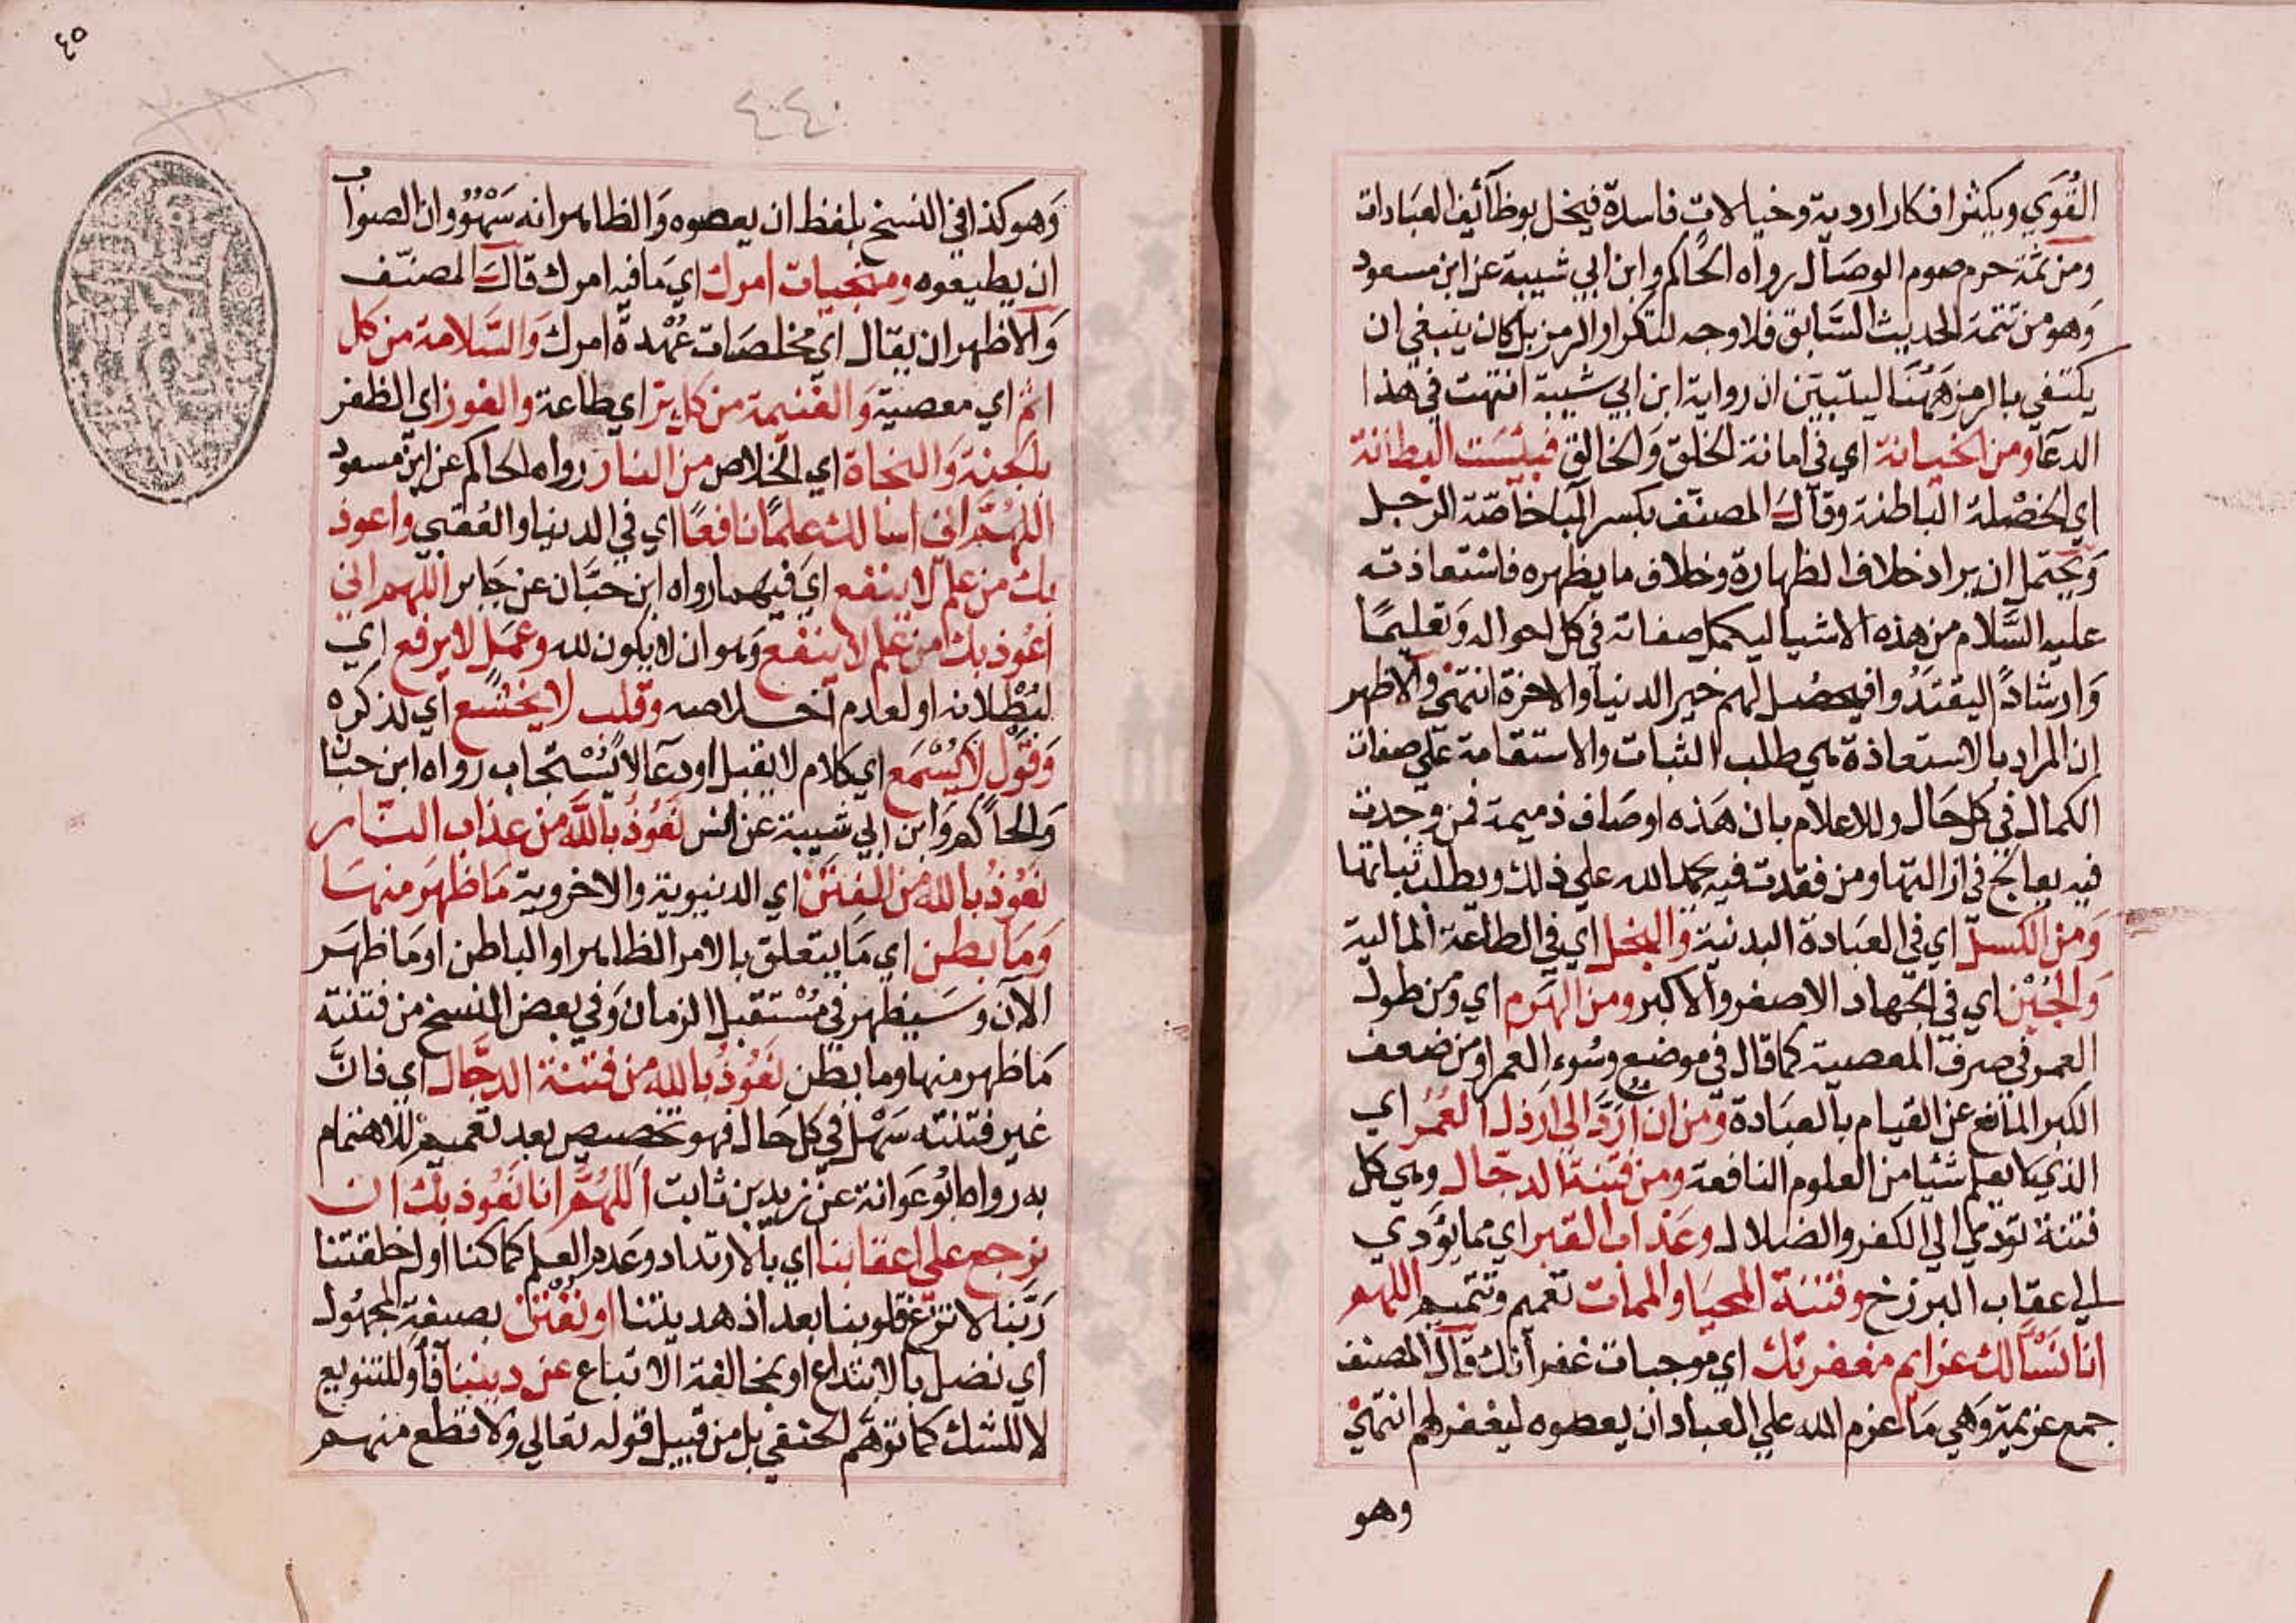 القُوَي ويكثر افكارا ردية وخيالات فاسدة فيخل بوظائف العبادات
ومن ثمة حرم صوم الوصال رواه الحاكم وابن ابي شيبة عن ابن مسعود
وهو من تتمة الحديث السابق فلا وجه لتكرار الرمز بل كان ينبغي ان
يكتفي بالرمز ههنا ليتبين ان رواية ابن ابي شيبة انتهت في هذا
الدعا ومن الخيانة اي في امانة الخلق والخالق فبئست البطانة
اي الخصلة الباطنة وقال المصنف بكسر البا خاصّة الرجل
ويحتمل ان يراد خلاف الظهارة وخلاف ما يظهره فاستعاذته
عليه السّلام من هذه الاشيا ليكمل صفاته في كل احواله وتعليمًا
وارشادًا ليقتدوا فيحصل لهم خير الدنيا والاخرة انتهى والاظهر
ان المراد بالاستعاذة هي طلب الثبات والاستقامة على صفات
الكمال في كل حال وللاعلام بان هذه اوصاف ذميمة فمن وجدت
فيه يعالج في ازالتها ومن فقدت فيه حمد الله على ذلك ويطلب ثباتها
ومن الكسل اي في العبادة البدنية والبخل اي في الطاعة المالية
والجُبْن اي في الجهاد الاصغر والاكبر ومن الهرم اي ومن طول
العمر في صرف المعصية كما قال في موضع وسُوء العمر او من ضعف
الكبر المانع عن القيام بالعبادة ومن ان اردّ الى ارذل العُمُر اي
الذي لا يعلم شئيا من العلوم النافعة ومن فتنة الدجال وهي كل
فتنة تودي الي الكفر والضلال وعذاب القبر اي مما يؤدي
الي عقاب البرزخ وفتنة المحيا والممات تعميم وتتميم اللهم
انا نسألك عزايم مغفرتك اي موجبات غفرانك قال المصنف
جمع عزيمة وهي ما عزم الله على العباد ان يعصوه ليغفر لهم انتهى
وهو
٤٥
٤٤٠
وهو كذا في النسخ بلفظ ان يعصوه والظاهر انه سَهْوٌ وان الصواب
ان يطيعوه ومنجيات امرك اي ما فيه امرك قال المصنف
والاظهر ان يقال اي مخلصات عُهْدة امرك والسّلامة من كل
اثم اي معصية والغنيمة من كل بر اي طاعة والفوز اي الظفر
بالجنة والنجاة اي الخلاص من النار رواه الحاكم عن ابن مسعود
اللهُمّ اني اسالك علمًا نافعًا اي في الدنيا والعُقبى واعوذ
بك من علم لا ينفع اي فيهما رواه ابن حبّان عن جابر اللهم اني
اعُوذ بك من علم لا ينفع وهو ان لا يكون لله وعمل لا يرفع اي
لبُطْلانه او لعدم اخلاصه وقلب لا يخشع اي لذكره
وقول لا يُسْمَع اي كلام لا يقبل او دعا لا يُسْتجاب رواه ابن حبان
والحاكم وابن ابي شيبة عن انس نعُوذ بالله من عذاب النّار
نعُوذ بالله من الفتن اي الدنيوية والاخروية ما ظهر منها
وما بطن اي ما يتعلق بالامر الظاهر او الباطن او ما ظهر
الآن وسيظهر في مُسْتقبل الزمان وفي بعض النسخ من فتنته
ما ظهر منها وما بطن نعُوذ بالله من فتنة الدجّال اي فانّ
غير فتنته سَهْل في كل حال فهو تخصيص بعد تعميم للاهتمام
به رواه ابُو عوانة عن زيد بن ثابت اللهُمّ انا نعُوذ بك ان
نرجع على اعقابنا اي بالارتداد وعدم العلم كما كنا اول خلقتنا
ربّنا لا تزغ قلوبنا بعد اذ هديتنا او نُفْتن بصيغة المجهُول
اي نضل بالابتداع او بمخالفة الاتباع عن ديننا فأو للتنويع
لا للشك كما توهّم الحنفي بل من قبيل قوله تعالى ولا قطع منهم